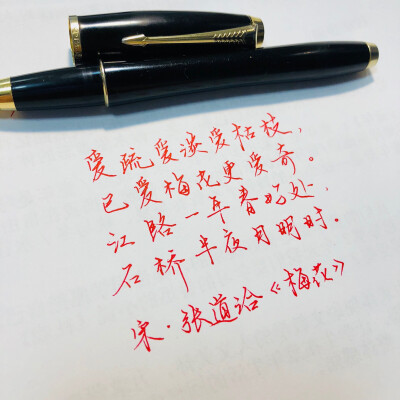 爱疏爱淡爱枯枝，
已爱梅花更爱奇。
江路一年春好处，
石桥半夜月明时。
宋·张道洽《梅花》